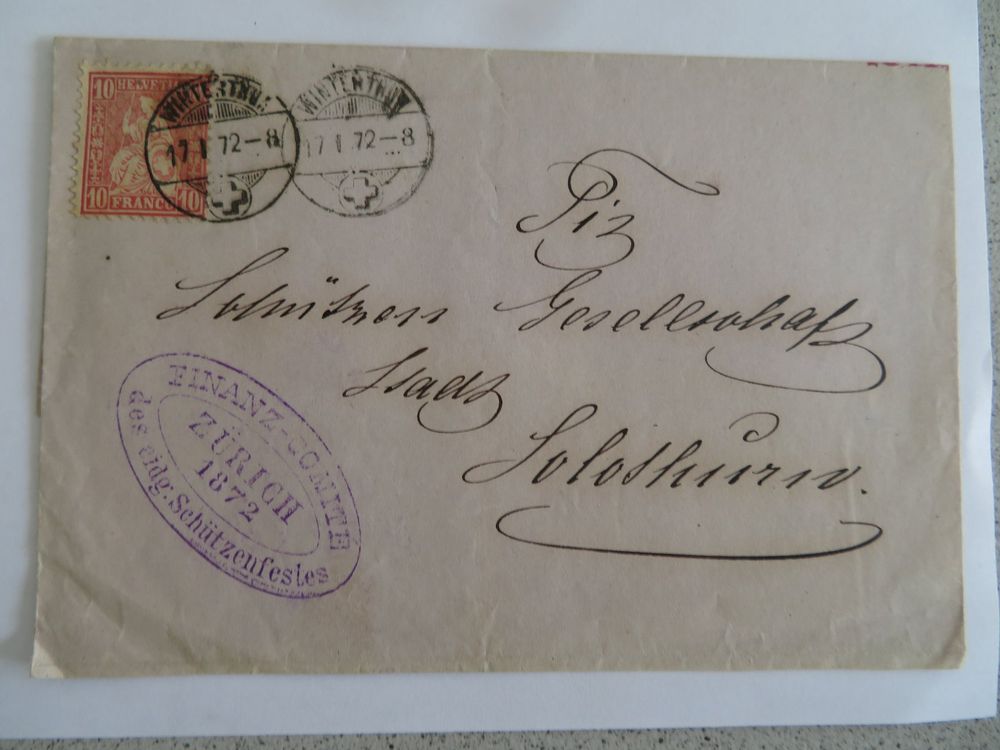 10 HELVETIA
10 FRANCO 10
WINTERTHUR
17 I 72-8
WINTERTHUR
17 I 72-8
Tit
Schützen Gesellschaft
Stadt
Solothurn.
FINANZ-COMITÉ
ZÜRICH
1872
des eidg: Schützenfestes